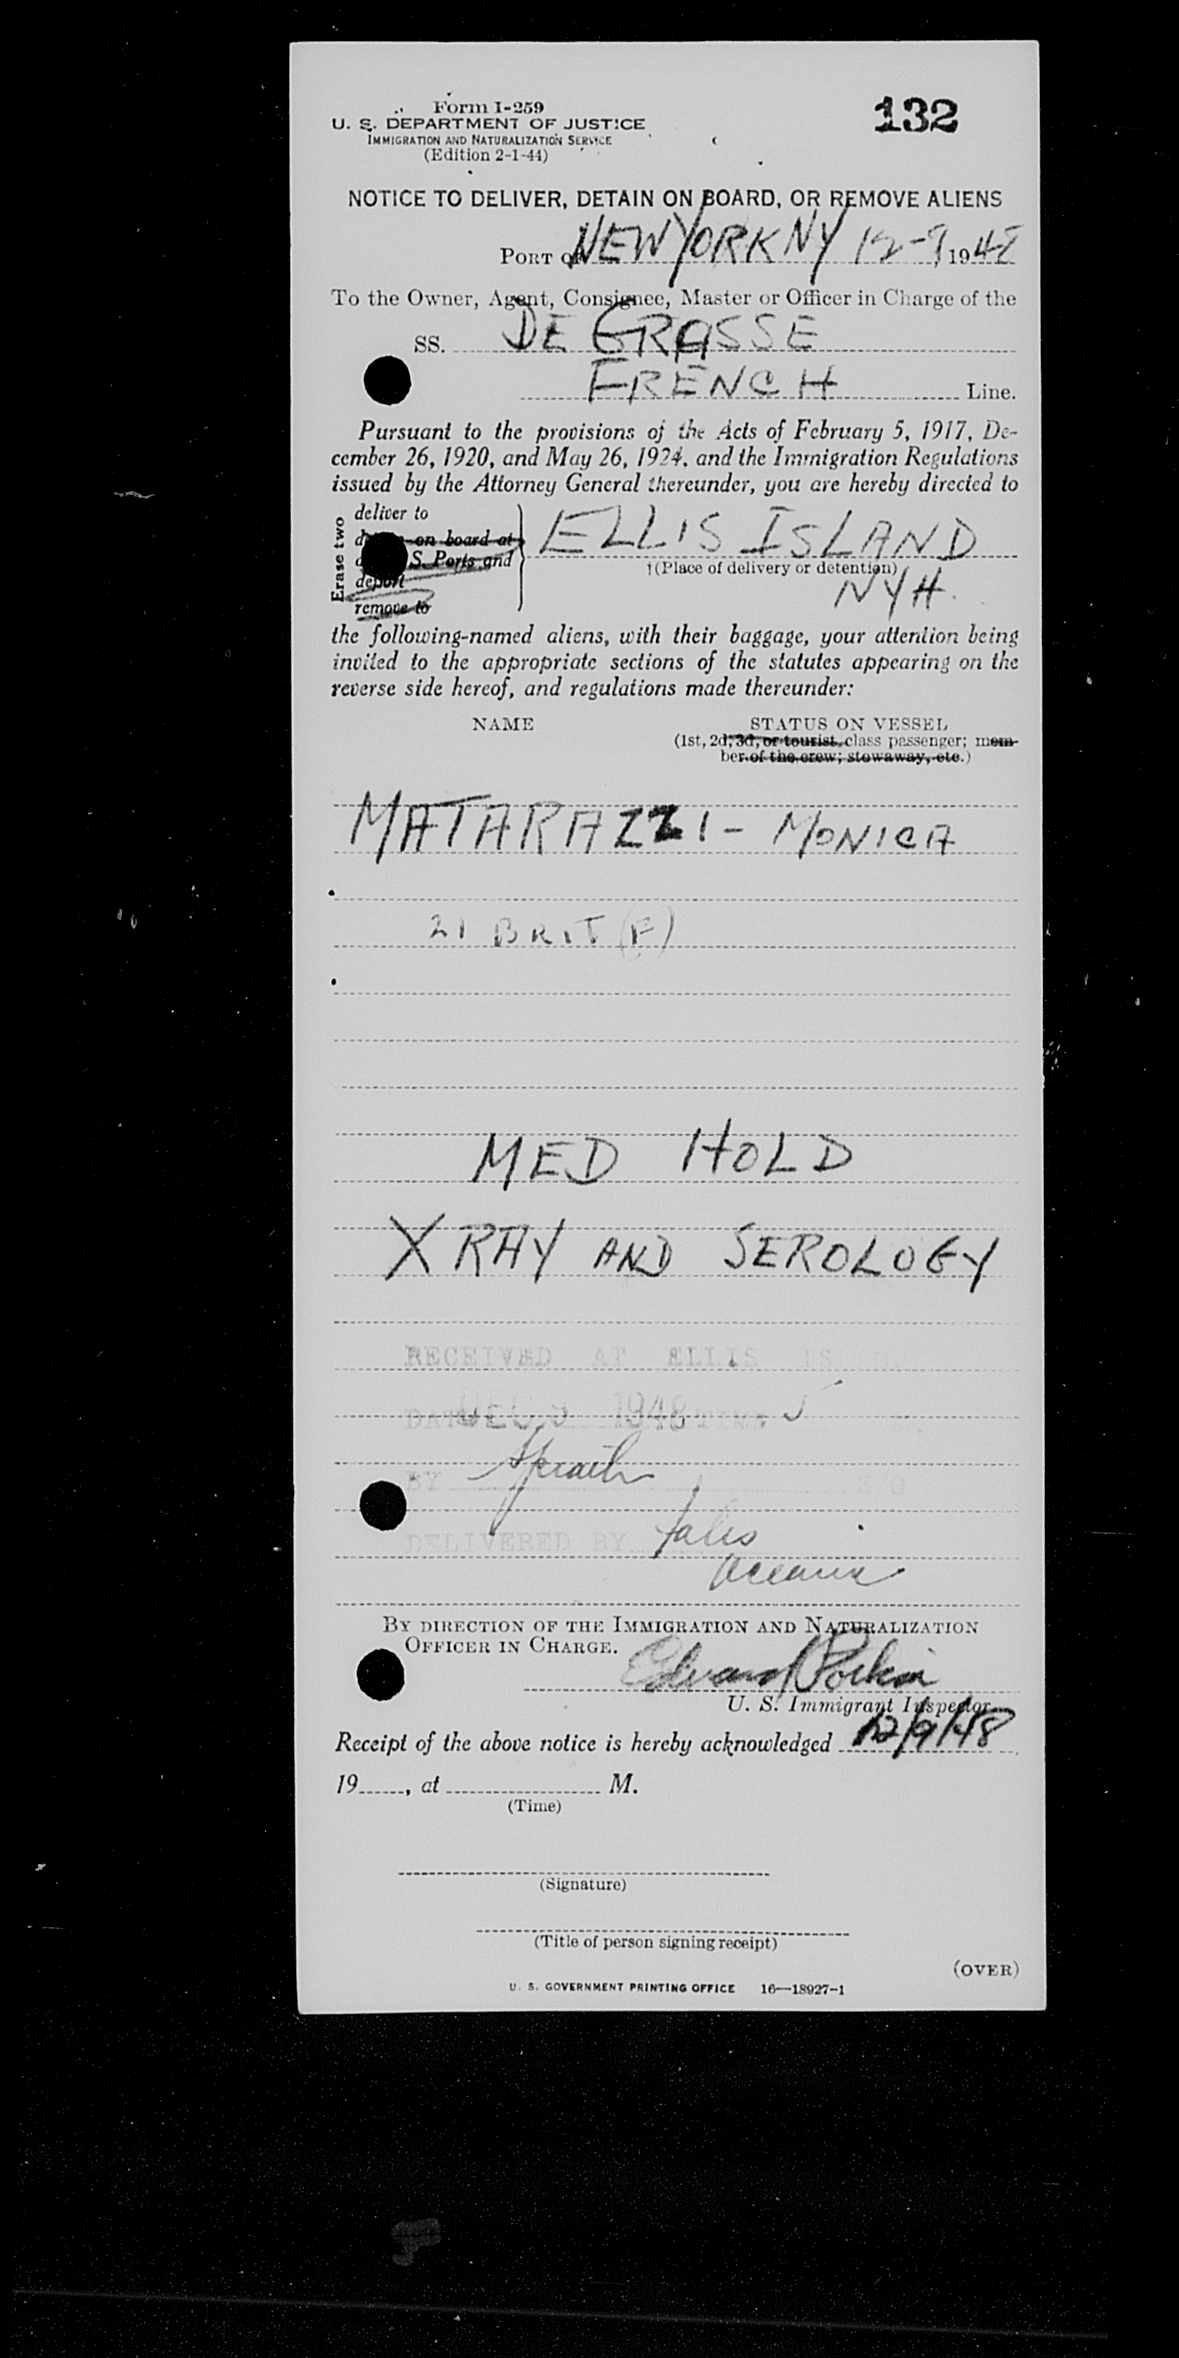 Form I-259
132
U. S. DEPARTMENT OF JUSTICE
IMMIGRATION AND NATURALIZATION SERVICE
(Edition 2-1-44)
NOTICE TO DELIVER, DETAIN ON BOARD, OR REMOVE ALIENS
PORT OF NEW YORK NY 12-9, 1948
To the Owner, Agent, Consignee, Master or Officer in Charge of the
SS. DE GRASSE
FRENCH Line.
Pursuant to the provisions of the Acts of February 5, 1917, De-
cember 26, 1920, and May 26, 1924, and the Immigration Regulations
issued by the Attorney General thereunder, you are hereby directed to
Erase two
deliver to
on board at
S. Ports and
deport
remove to
ELLIS ISLAND
†(Place of delivery or detention)
NYH.
the following-named aliens, with their baggage, your attention being
invited to the appropriate sections of the statutes appearing on the
reverse side hereof, and regulations made thereunder:
NAME
STATUS ON VESSEL
(1st, 2d, 3d, or tourist class passenger; mem-
ber of the crew; stowaway, etc.)
MATARAZZI - MONICA
21 BRIT (F)
MED HOLD
X RAY AND SEROLOGY
RECEIVED AT ELLIS IS
DATE DEC 9 1948 TIME
BY
DELIVERED BY
BY DIRECTION OF THE IMMIGRATION AND NATURALIZATION
OFFICER IN CHARGE.
Edward
U. S. Immigrant Inspector.
Receipt of the above notice is hereby acknowledged 12/9/48
19, at M.
(Time)
(Signature)
(Title of person signing receipt)
(OVER)
U. S. GOVERNMENT PRINTING OFFICE 16—18927-1